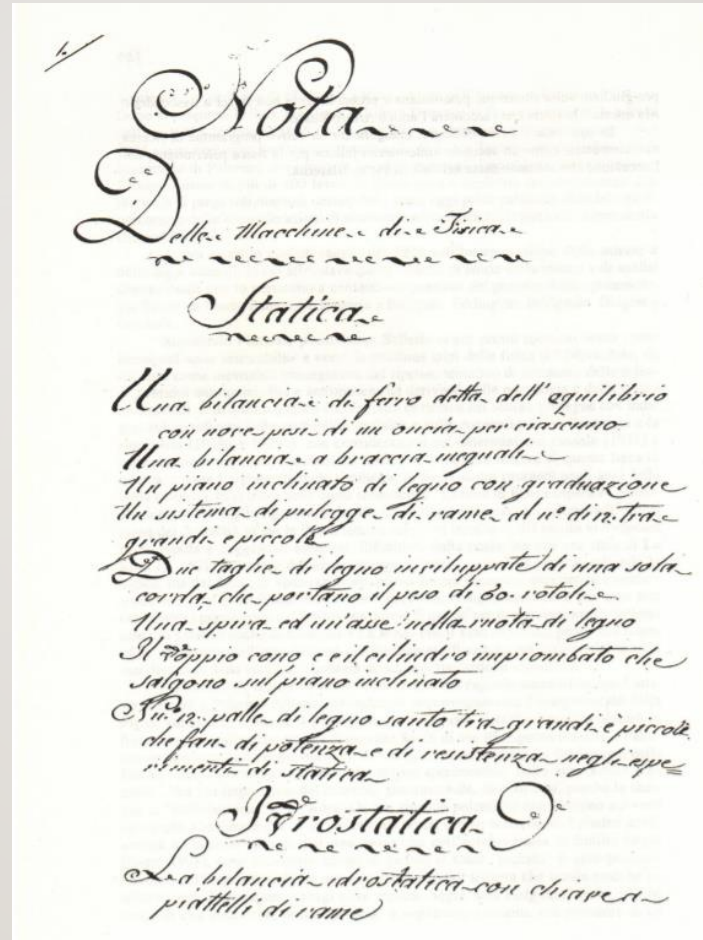 1.
Nota
Delle Macchine di Fisica
Statica
Una bilancia di ferro detta dell'equilibrio
con nove pesi di un oncia per ciascuno
Una bilancia a braccia ineguali
Un piano inclinato di legno con graduazione
Un sistema di pulegge di rame al n.º di 12. tra
grandi e piccole
Due taglie di legno inviluppate di una sola
corda che portano il peso di 60. rotoli
Una spira ed un'asse nella ruota di legno
Il doppio cono e il cilindro impiombato che
salgono sul piano inclinato
palle di legno santo tra grandi è piccole
che fan di potenza e di resistenza negli espe=
rimenti di statica
Idrostatica
La bilancia idrostatica con chiave a
piattelli di rame